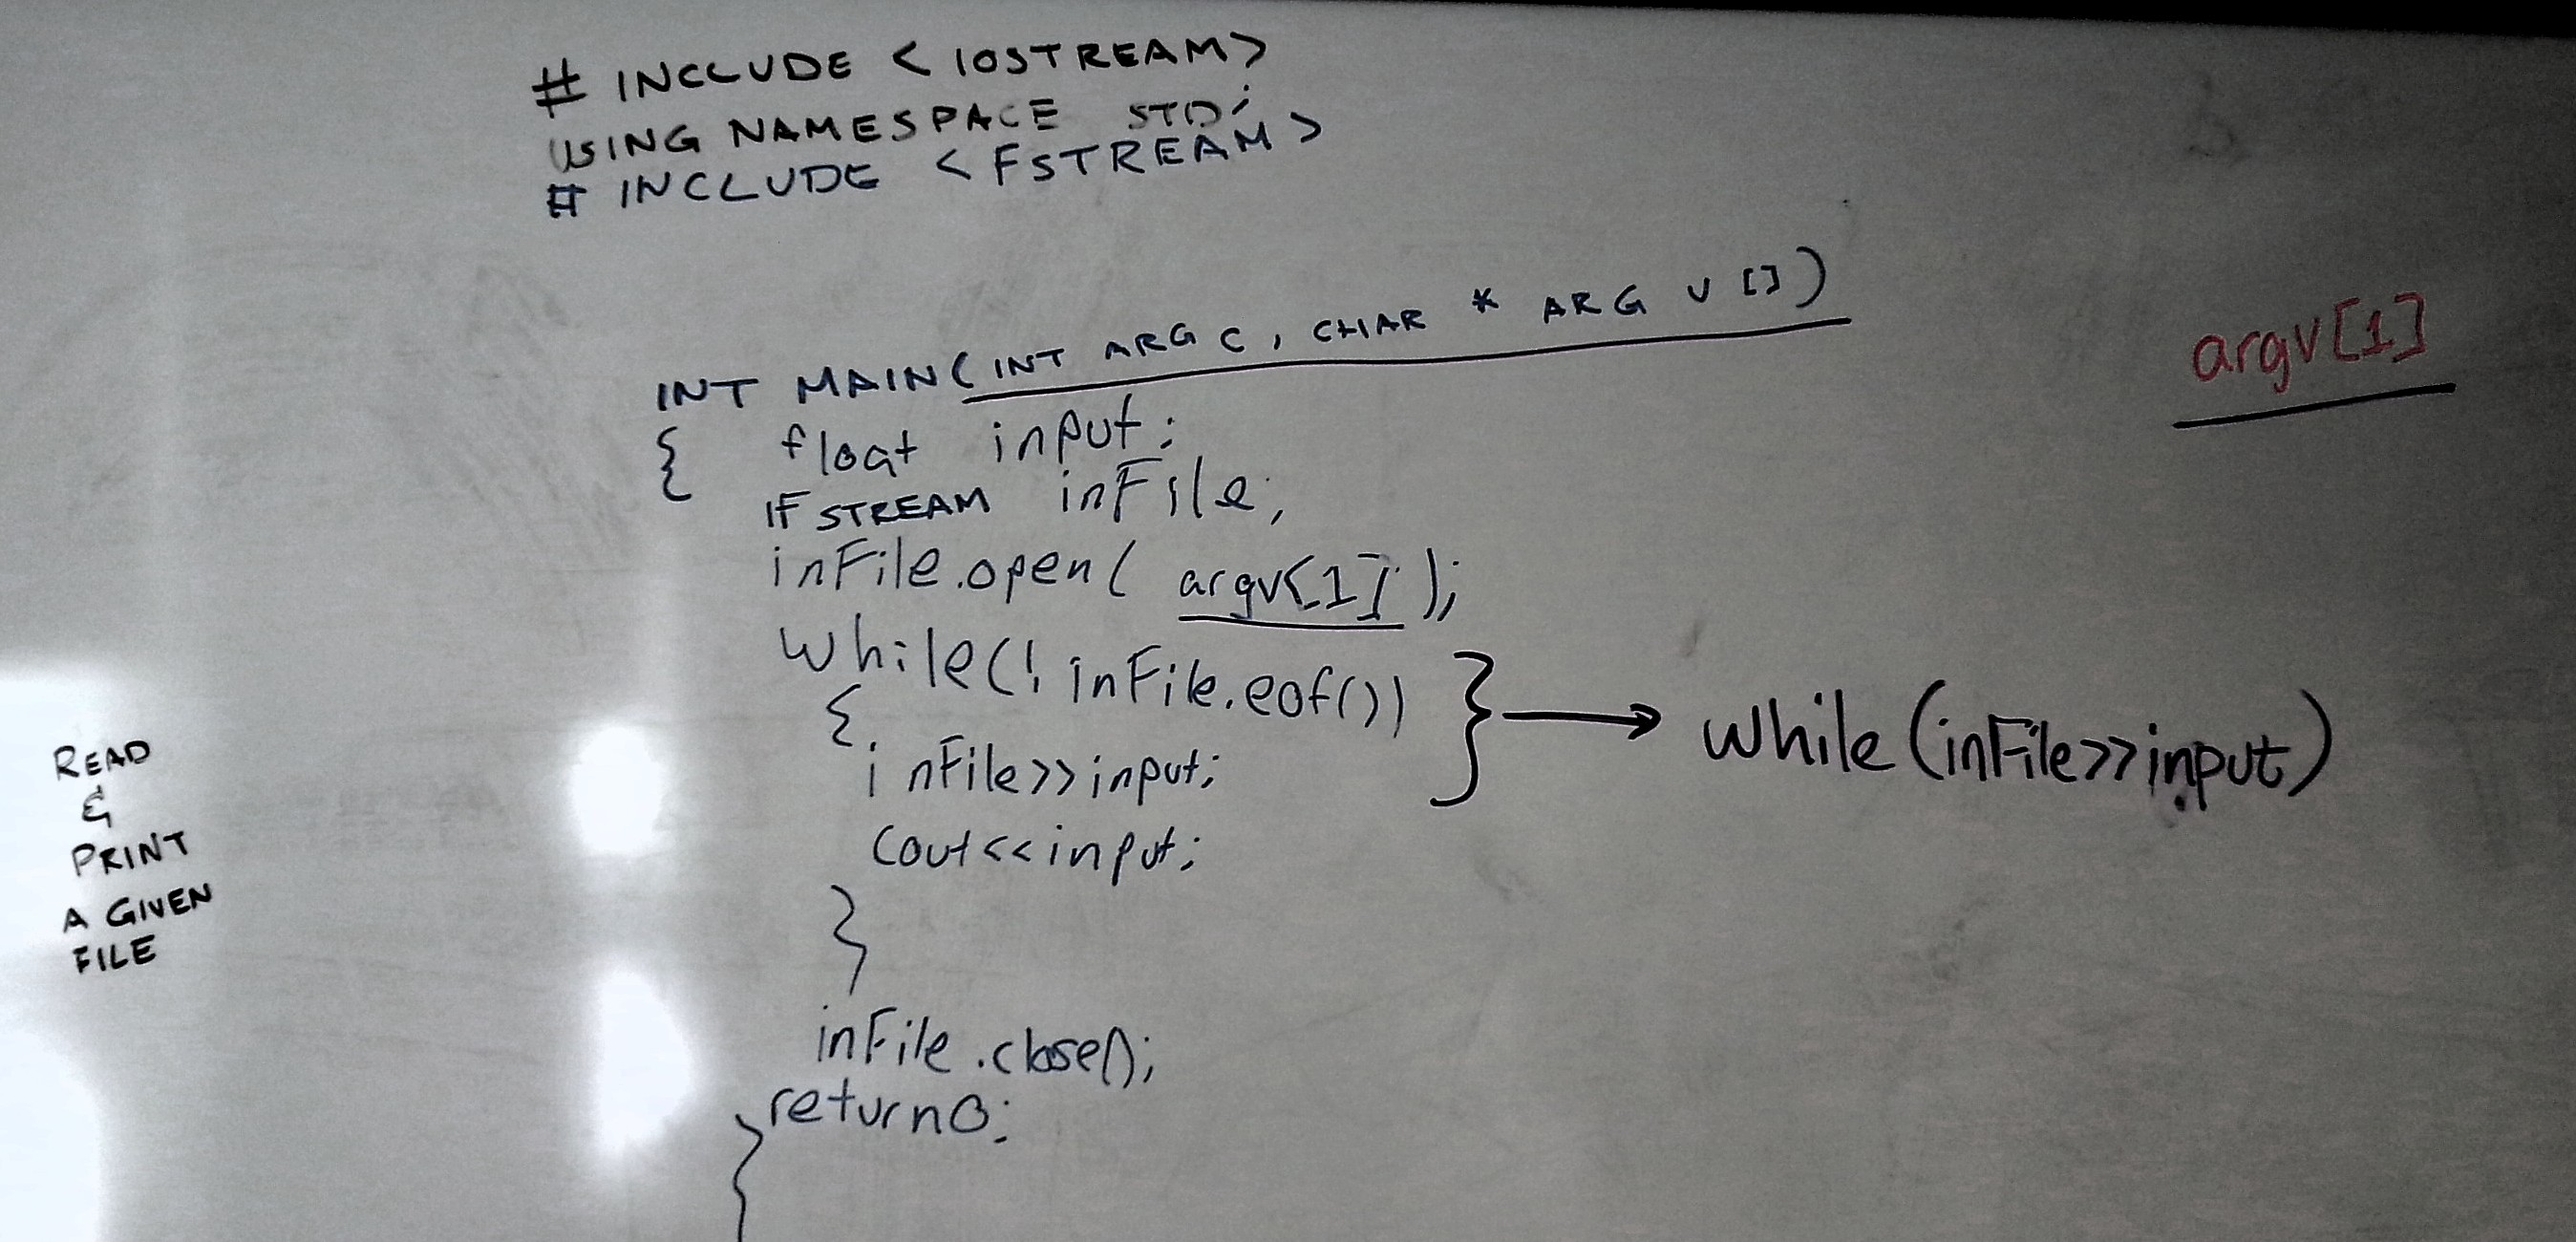 # INCLUDE < IOSTREAM>
USING NAMESPACE STD;
# INCLUDE < FSTREAM >
INT MAIN(INT ARG C, CHAR * ARG V [])
argv[1]
{ float input;
IFSTREAM inFile;
inFile.open( argv[1] );
while(! inFile.eof())
{
} → while(inFile>>input)
inFile>>input;
cout<<input;
}
inFile.close();
return0;
}
READ
&
PRINT
A GIVEN
FILE